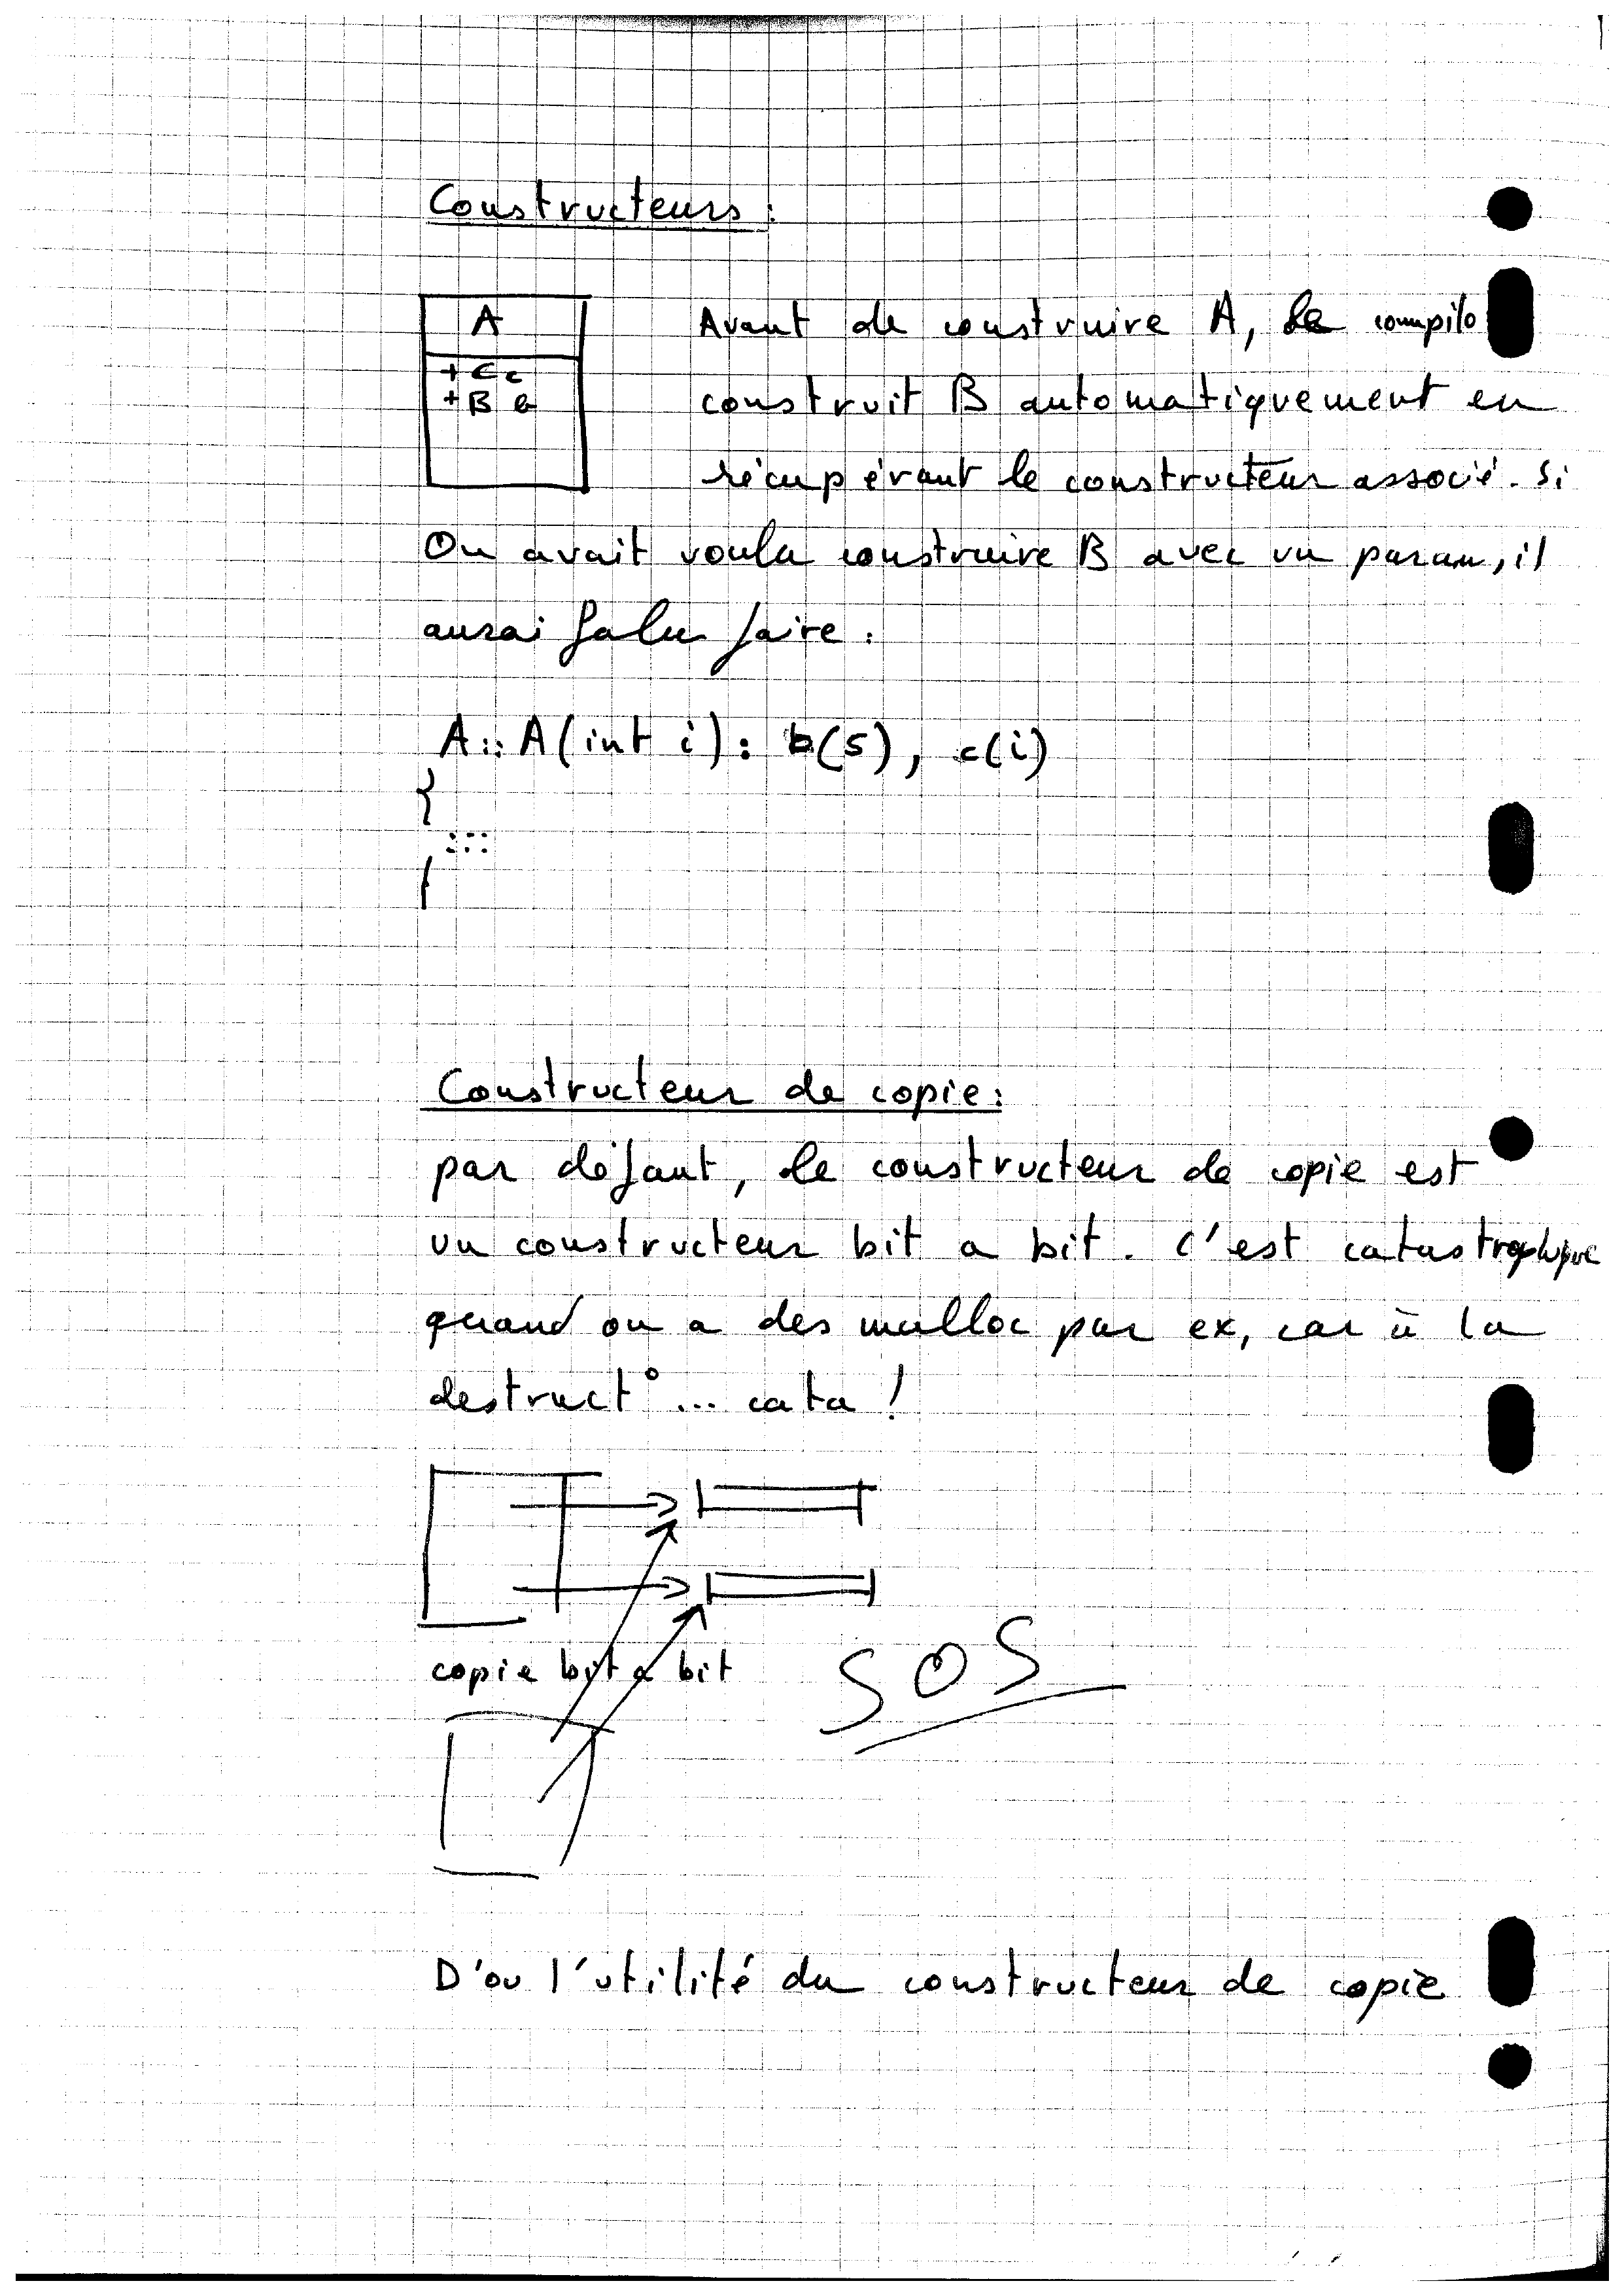 Constructeurs :
A
+ C c
+ B b
Avant de construire A, le compilo
construit B automatiquement en
récupérant le constructeur associé. Si
On avait voulu construire B avec un param, il
aurai falu faire :
A::A(int i): b(5), c(i)
{
:::
}
Constructeur de copie :
par défaut, le constructeur de copie est
un constructeur bit a bit. C'est catastrophique
quand on a des malloc par ex, car à la
destruct° ... cata !
copie bit a bit
SOS
D'ou l'utilité du constructeur de copie